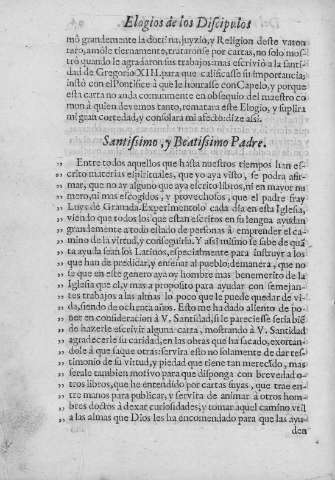 Elogios de los Discipulos
mó grandemente la doctrina, juyzio, y Religion deste varon
raro, amóle tiernamente, trataronse por cartas, no solo mos-
tró quando le agradaron sus trabajos: mas escrivió a la santi-
dad de Gregorio XIII. para que calificasse su importancia;
instó con el Pontifice á que le honrasse con Capelo, y porque
esta carta no anda comunmente en obsequio del maestro co
mo á quien devemos tanto, rematara este Elogio, y suplira
mi gran cortedad, y consolara mi afecto: dize assi.
Santissimo, y Beatissimo Padre.
,, Entre todos aquellos que hasta nuestros tiempos han es-
,, crito materias espirituales, que yo aya visto, se podra afir-
,, mar, que no ay alguno que aya escrito libros, ni en mayor nu
,, mero, ni mas escogidos, y provechosos, que el padre fray
,, Luys de Granada. Experimentolo cada dia en esta Iglesia,
,, viendo que todos los que estan escritos en su lengua ayudan
,, grandemente a todo estado de personas á emprender el ca-
,, mino de la virtud, y conseguirla. Y assi mismo se sabe de quá
,, ta ayuda sean los Latinos, especialmente para instruyr a los
,, que han de predicar, y enseñar al pueblo; demanera, que no
,, se que en este genero aya oy hombre mas benemerito de la
,, Iglesia que el, y mas a proposito para ayudar con semejan-
,, tes trabajos a las almas lo poco que le puede quedar de vi-
,, da, siendo de ochenta años. Esto me ha dado aliento de po-
,, ner en consideracion á V. Santidad, si le pareciesse seria bié
,, de hazerle escrivir alguna carta, mostrando á V. Santidad
,, agradecerle su caridad, en las obras que ha sacado, exortan-
,, dole á que saque otras: servira esto no solamente de dar tes-
,, timonio de su virtud, y piedad que tiene tan merecido, mas
,, serale tambien motivo para que disponga con brevedad o-
,, tros libros, que he entendido por cartas suyas, que trae en-
,, tre manos para publicar, y servira de animar á otros hom-
,, bres doctos á dexar curiosidades, y tomar aquel camino util
,, a las almas que Dios les ha encomendado para que las ayu-
den